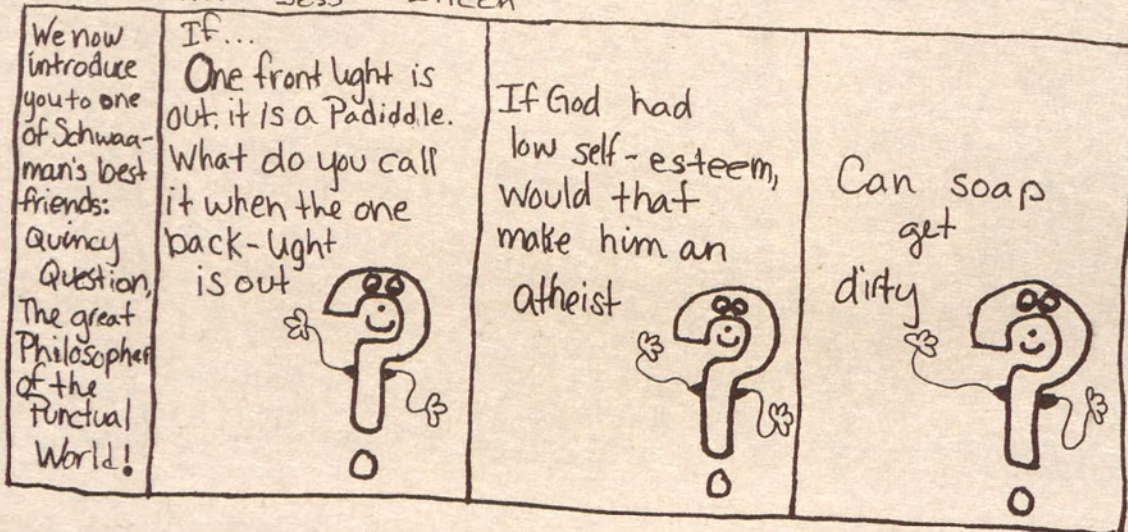 We now
introduce
you to one
of Schwaa-
man's best
friends:
Quincy
Question,
The great
Philosopher
of the
Punctual
World!
If...
One front light is
out, it is a Padiddle.
What do you call
it when the one
back-light
is out
If God had
low self-esteem,
would that
make him an
atheist
Can soap
get
dirty